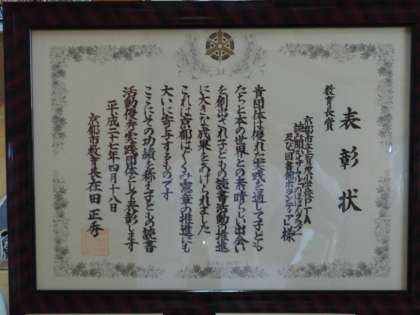 表彰状
教育長賞
京都市立
及び図書館ボランティア 様
貴団体は優れた実践を通して子ども
たちと本の世界との素晴らしい出会い
を創出され子どもの読書活動の推進
に大きな成果をあげられました
これは京都はぐくみ憲章の推進にも
大いに寄与するものです
ここにその功績を称え子どもの読書
活動優秀実践団体として表彰します
平成二十七年四月十八日
京都市教育長 在田正秀